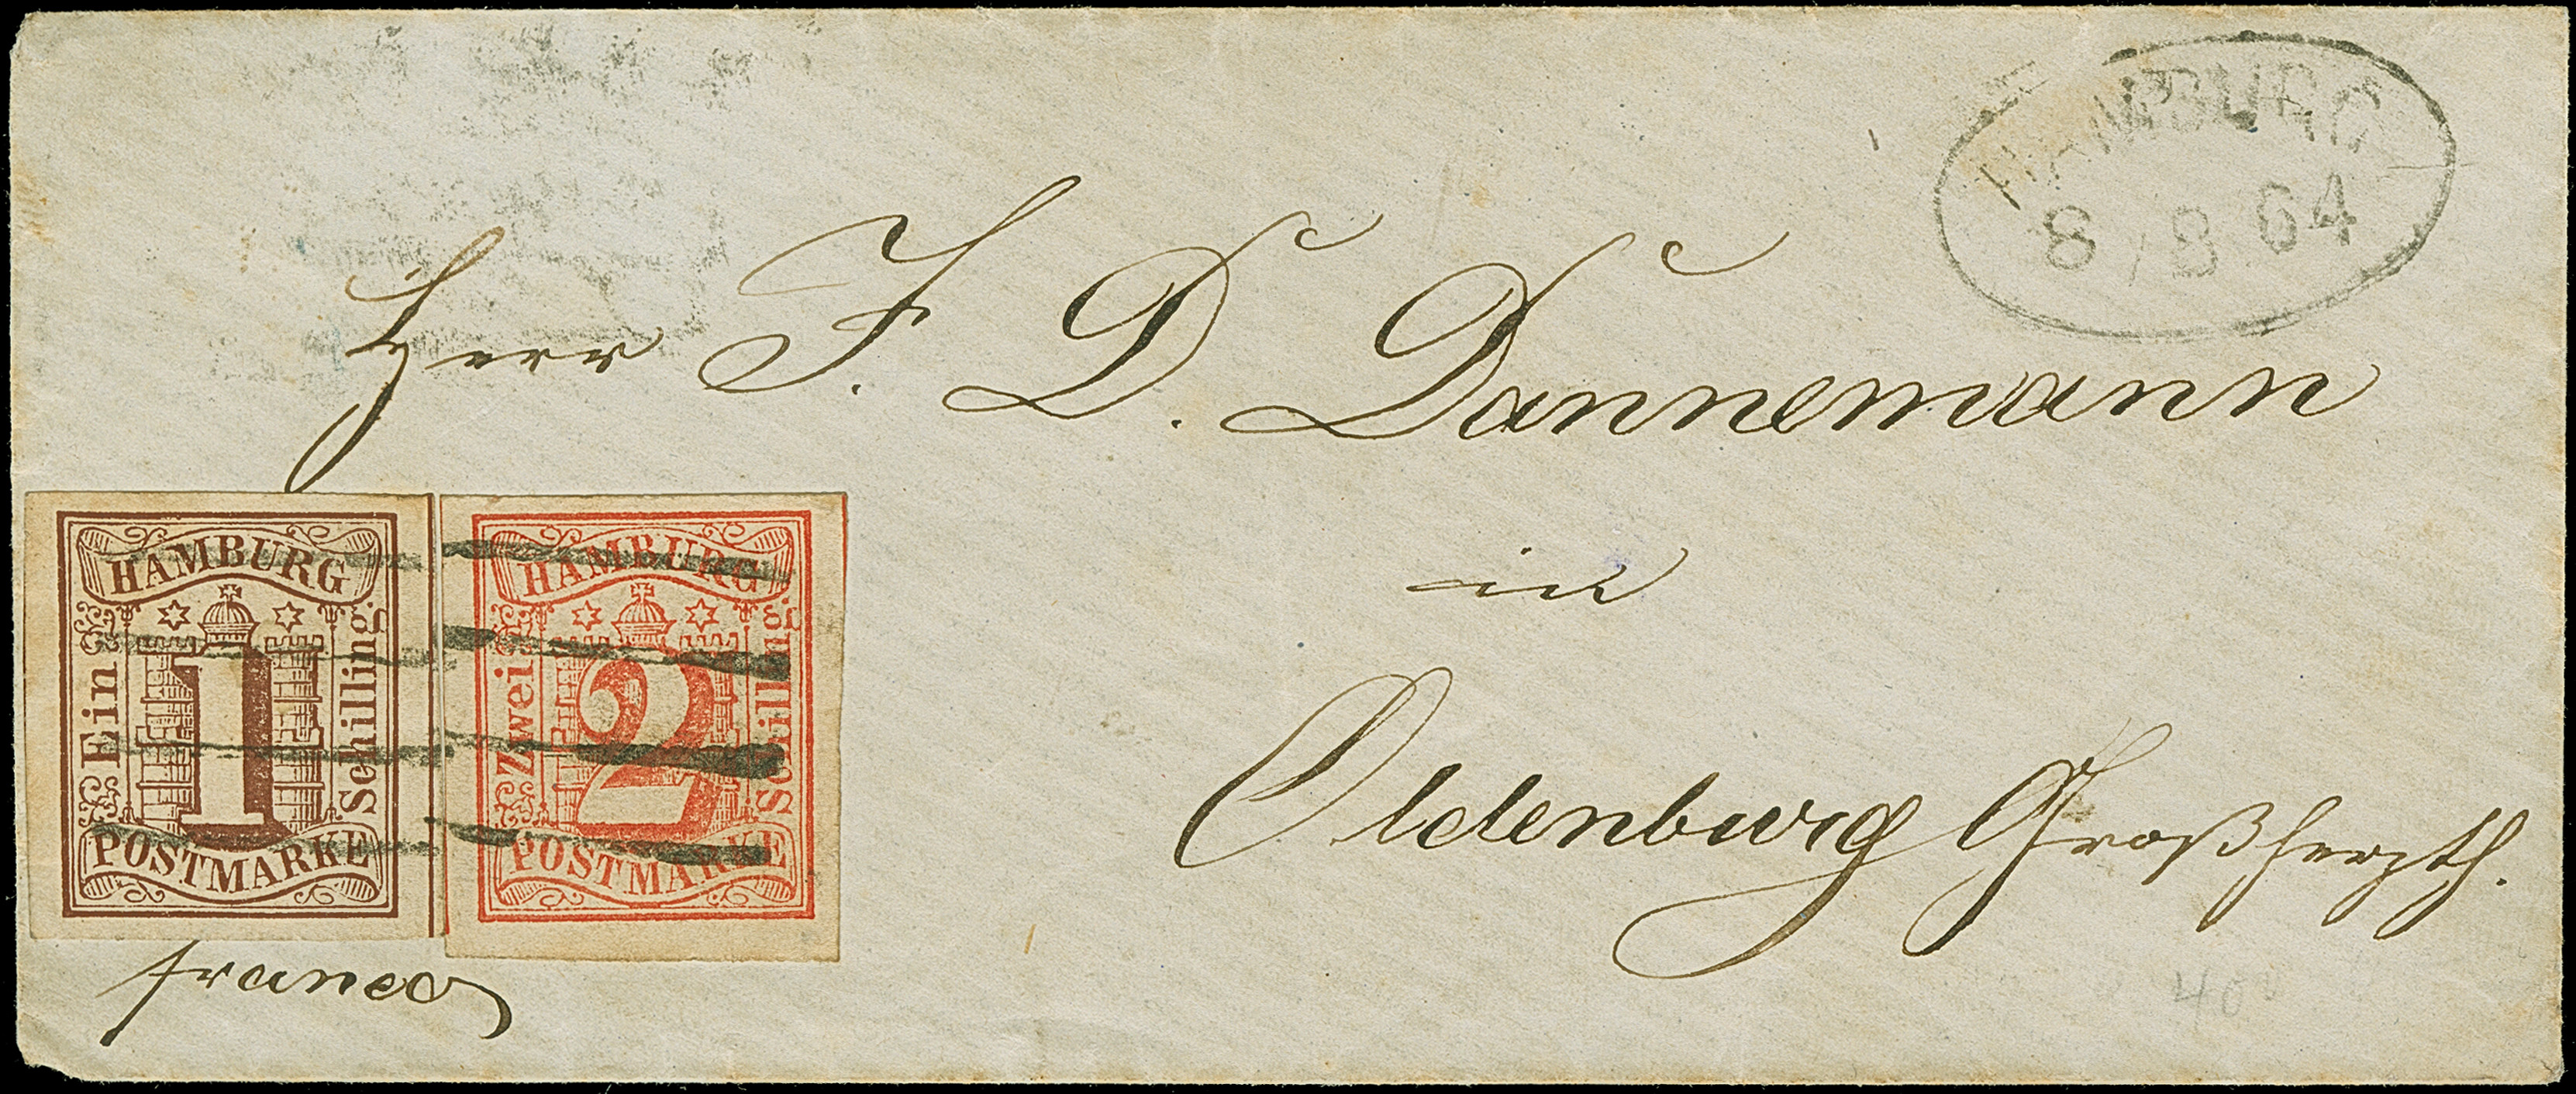 HAMBURG
8 / 3 64
Herr F. D. Dannemann
in
Oldenburg Großherzth.
HAMBURG
Ein
1
Schilling
POSTMARKE
HAMBURG
Zwei
2
Schilling.
POSTMARKE
franco